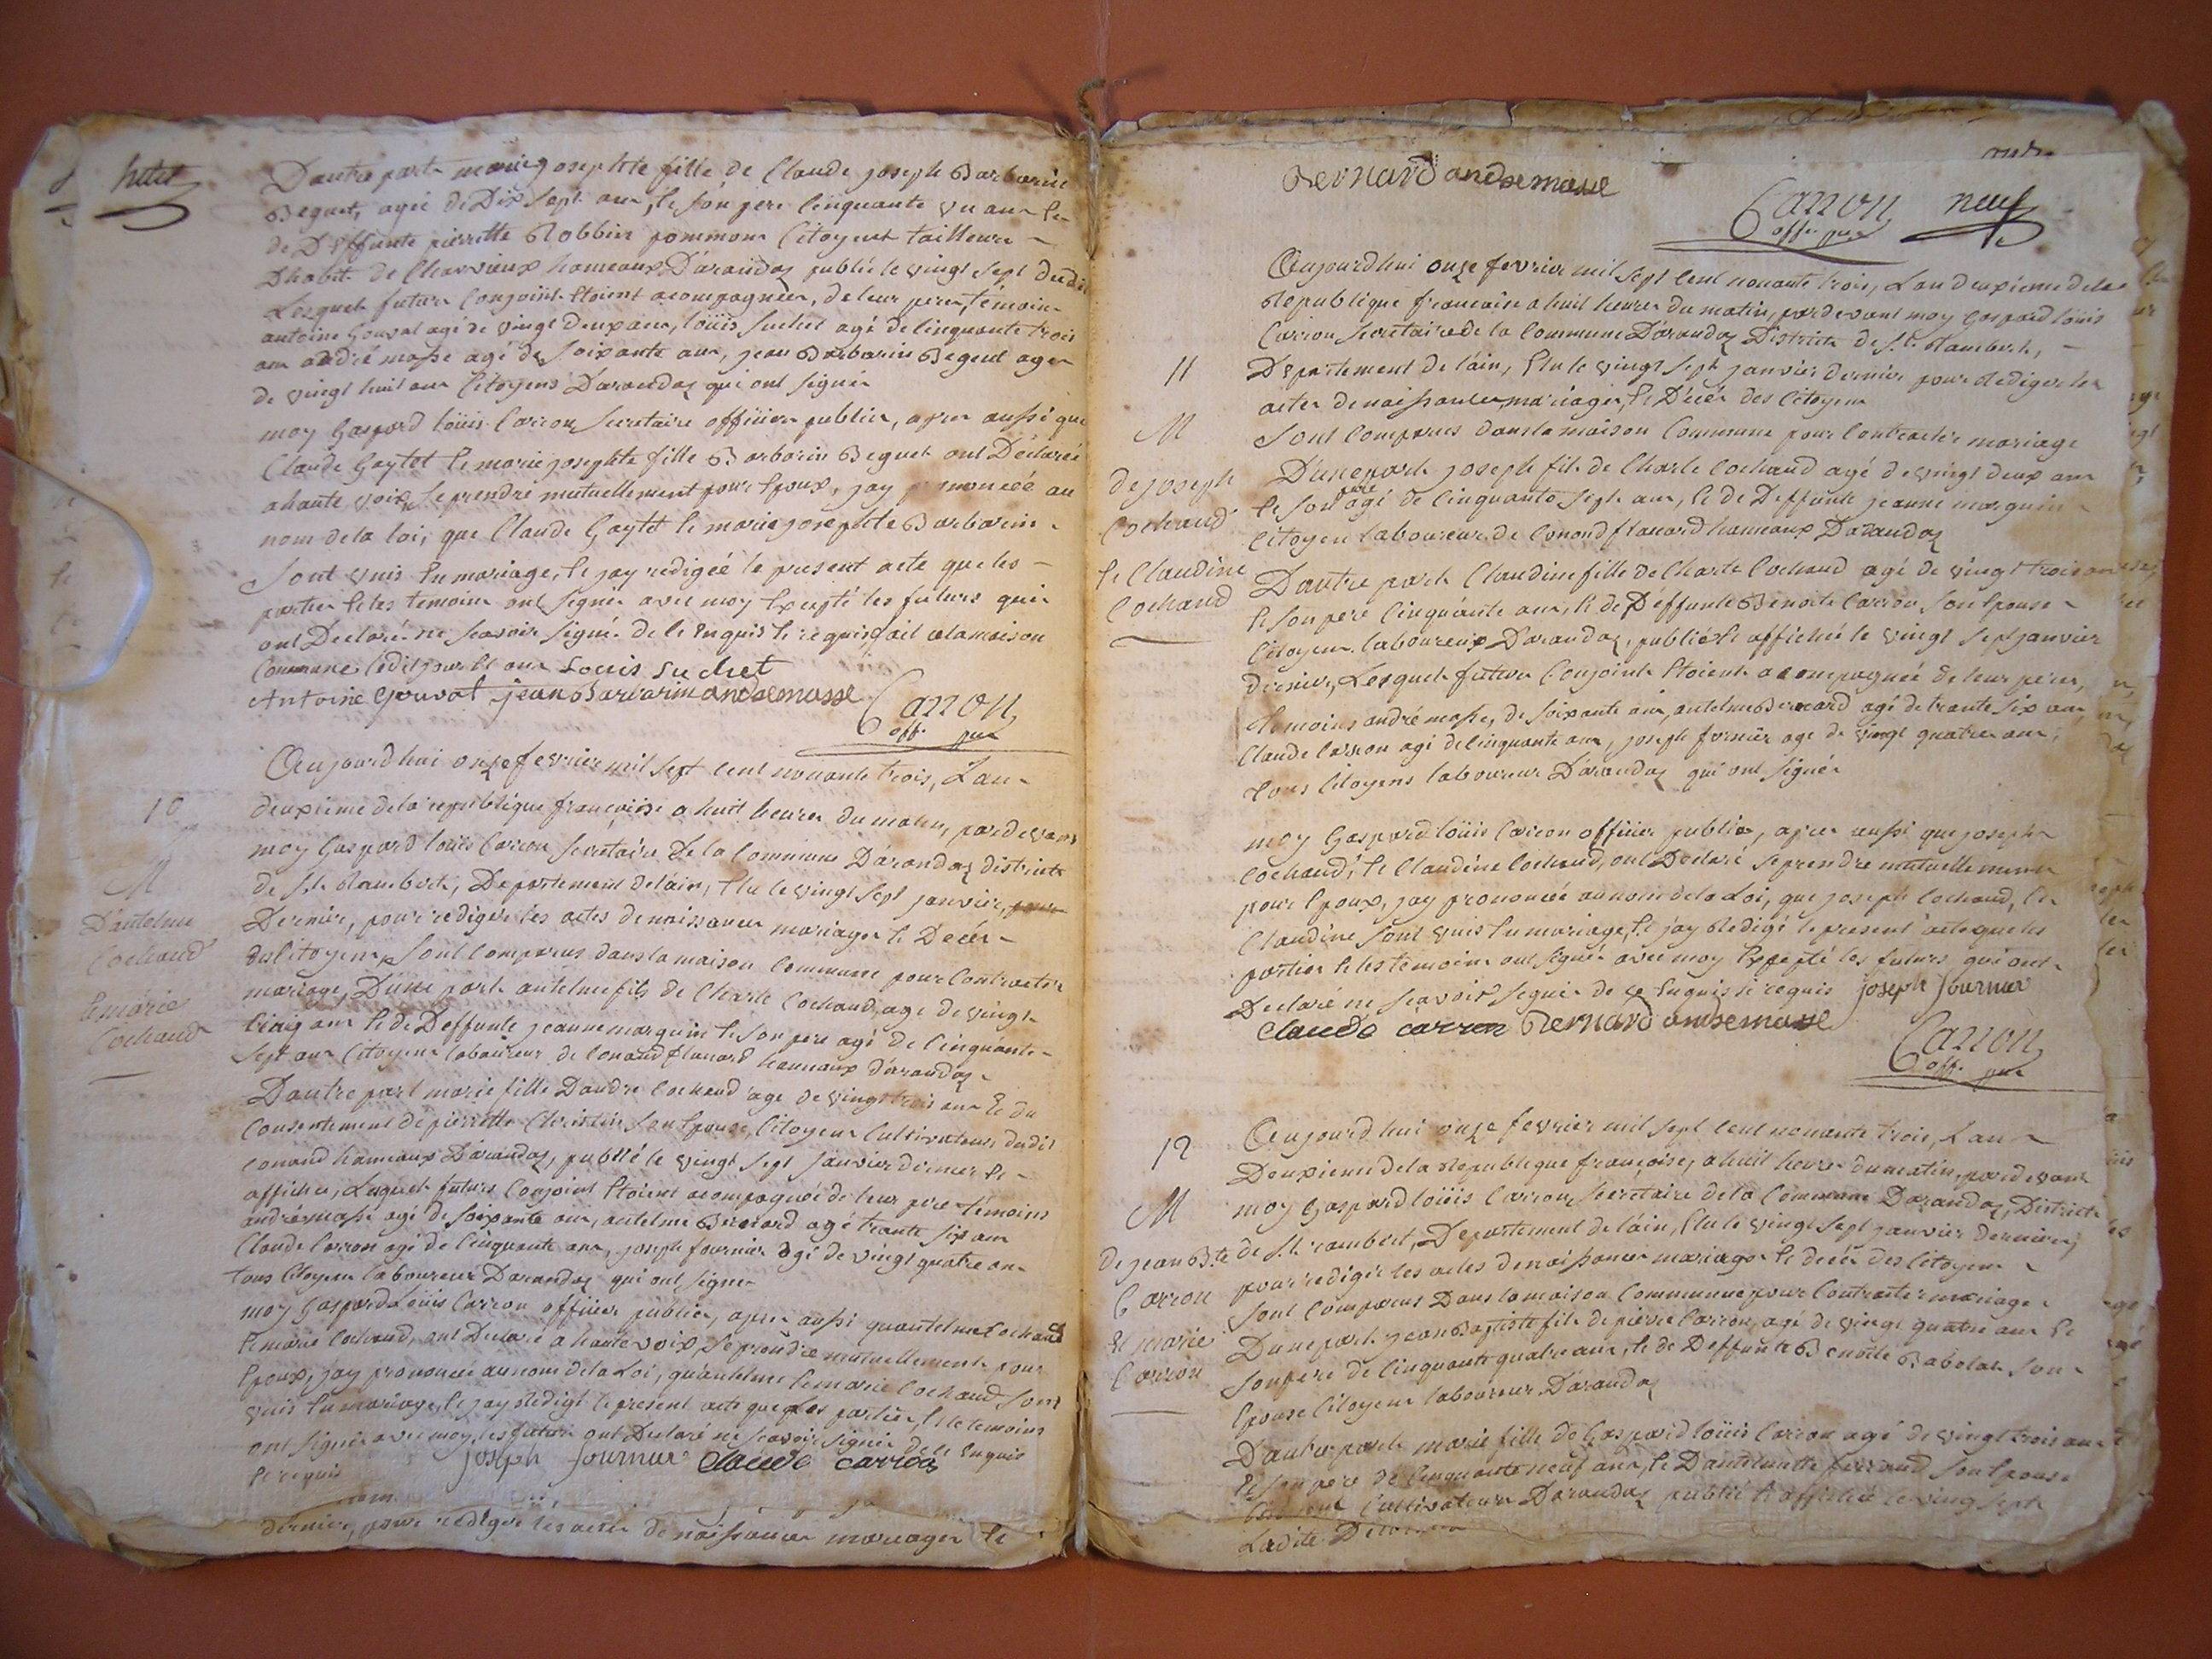 huit
D'autre part marie josephte fille de Claude joseph Barbarin
Beguet, agée de Dix sept ans, et son pere cinquante un ans et
de Deffunte pierrette Robbin pommon Citoyens tailleurs
Dhabit de Charvieux hameaux D'arandaz publié le vingt sept dudit
Lesquels futurs Conjoints Etoient acompagnées, de leur peres, témoins
antoine gouvat agé de vingt deux ans, loüis suchet agé de cinquante trois
ans andré masse agé de soixante ans, jean Barbarin Beguet agé
de vingt huit ans Citoyens D'arandaz qui ont signés
moy Gaspard loüis Carron Secretaire officier publica, apres aussi que
Claude Gaytet et marie josephte fille Barbarin Beguet ont Déclarés
a haute voix, se prendre mutuellement pour Epoux, jay prononcéé au
nom de la loi, que Claude Gaytet et marie josephte Barbarin
Sont Vnis En mariage, Et jay rédigéé le present acte que les
parties et les temoins ont signés avec moy Excepté les futurs qui
ont Declaré ne scavoir signé de ce Enquis et requis fait a la maison
Commune ledit jour Et an Louis suchet
Antoine gouvat jean Barbarin andremasse
Carron
off. pu
10
M
D'antelme
Cochaud
et marie
Cochaud
Aujourdhui onze fevrier mil sept cent nonante trois, L'an
deuxieme de la republique francaise a huit heures du matin, pardevant
moy Gaspard loüis Carron secretaire de la Commune D'arandaz district
de St Rambert, Departement de l'ain, Elu le vingt sept janvier,
Dernier, pour rediger les actes de naissances mariages et Decés
des Citoyens, Sont Comparus dans la maison Commune pour Contracter
mariage, D'une part antelme fils de Charle Cochaud, agé de vingt
cinq ans et de Deffunte jeanne marguin et son pere agé de Cinquante
sept ans Citoyens laboureur de Conand flanard hameaux d'arandaz
D'autre part marie fille D'andre Cochaud agé de vingt trois ans Et du
Consentement de pierrette Christin son Epouse, Citoyens Cultivateurs dudit
Conand hameaux D'arandaz, publié le vingt sept janvier dernier et
affiché, Lesquels futurs Conjoint Etoient acompagnéé de leur pere témoins
andré masse agé de soixante ans, antelme Bernard agé trante six ans
Claude Carron agé de Cinquante ans, joseph fournier agé de vingt quatre ans
tous Citoyens laboureur D'arandaz qui ont signés
moy Gaspard Loüis Carron officier publica, apres aussi qu'antelme Cochaud
et marie Cochaud, ont Declaré a haute voix, se prendre mutuellement pour
Epoux, jay prononcée au nom de la Loi, qu'antelme et marie Cochaud Sont
Vnis En mariage, Et jay redigé le present acte que les parties Et le temoins
ont signés avec moy, les futurs ont Declaré ne scavoir signer de ce Enquis
et requis joseph fournier Claude carron
dernier, pour rediger les actes de naissances mariages et
Bernard andremasse
Carron
off. pu
neuf
11
M
de joseph
Cochaud
Et Claudine
Cochaud
Aujourdhui onze fevrier mil sept cent nonante trois, L'an deuxieme de la
Republique francaise a huit heures du matin, pardevant moy Gaspard loüis
Carron Secretaire de la Commune D'arandaz District de St. Rambert,
Departement de l'ain, Elu le vingt sept janvier dernier pour Rediger les
actes de naissances, mariages, Et Décés des Citoyens
Sont Comparus dans la maison Commune pour Contracter mariage
D'une part joseph fils de Charle Cochaud agé de vingt deux ans
et son pere agé de cinquante sept ans, Et de Deffunte jeanne marguin
Citoyens laboureur de Conand flanard hameaux D'arandaz
D'autre part Claudine fille de Charle Cochaud agé de vingt trois ans
et son pere cinquante ans, Et de Deffunte Benoite Carron son Epouse
Citoyens laboureux D'arandaz, publié et affiché le vingt sept janvier
dernier, Lesquels futurs Conjoint Etoient acompagnéé de leur peres,
temoins andré masse, de soixante ans, antelme Bernard agé de trante six ans
Claude Carron agé de cinquante ans, joseph fournier agé de vingt quatre ans,
tous Citoyens laboureur D'arandaz qui ont signés
moy Gaspard loüis Carron officier publica, apres aussi que joseph
Cochaud, Et Claudine Cochaud, ont Declaré se prendre mutuellement
pour Epoux, jay prononcéé au nom de la Loi, que joseph Cochaud, Et
Claudine Sont Vnis En mariage, Et jay Redigé le present acte que les
parties et les temoins ont signés avec moy Excepté les futurs qui ont
Declaré ne scavoir signer de ce Enquis et requis joseph fournier
Claude carron Bernard andremasse
Carron
off. pu
12
M
de jean Bte
Carron
et marie
Carron
Aujourd'hui onze fevrier mil sept cent nonante trois, L'an
Deuxieme de la Republique françoise, a huit heures du matin, pardevant
moy Gaspard loüis Carron, Secretaire de la Commune D'arandaz, District
de St. rambert, Departement de l'ain, Elu le vingt sept janvier dernier,
pour rediger les actes de naissances mariages Et decés des Citoyens
Sont Comparus Dans la maison Commune pour Contracter mariage
D'une part jean Baptiste fils de pierre Carron, agé de vingt quatre ans Et
son pere de Cinquante quatre ans, Et de Deffunte Benoite Babolat son
Epouse Citoyens laboureur D'arandaz
D'autre part marie fille de Gaspard loüis Carron agé de vingt trois ans
Et son pere de Cinquante neuf ans, Et D'antoinette ferrand son Epouse
Cultivateurs D'arandaz publié Et affiché le vingt sept
Ladite